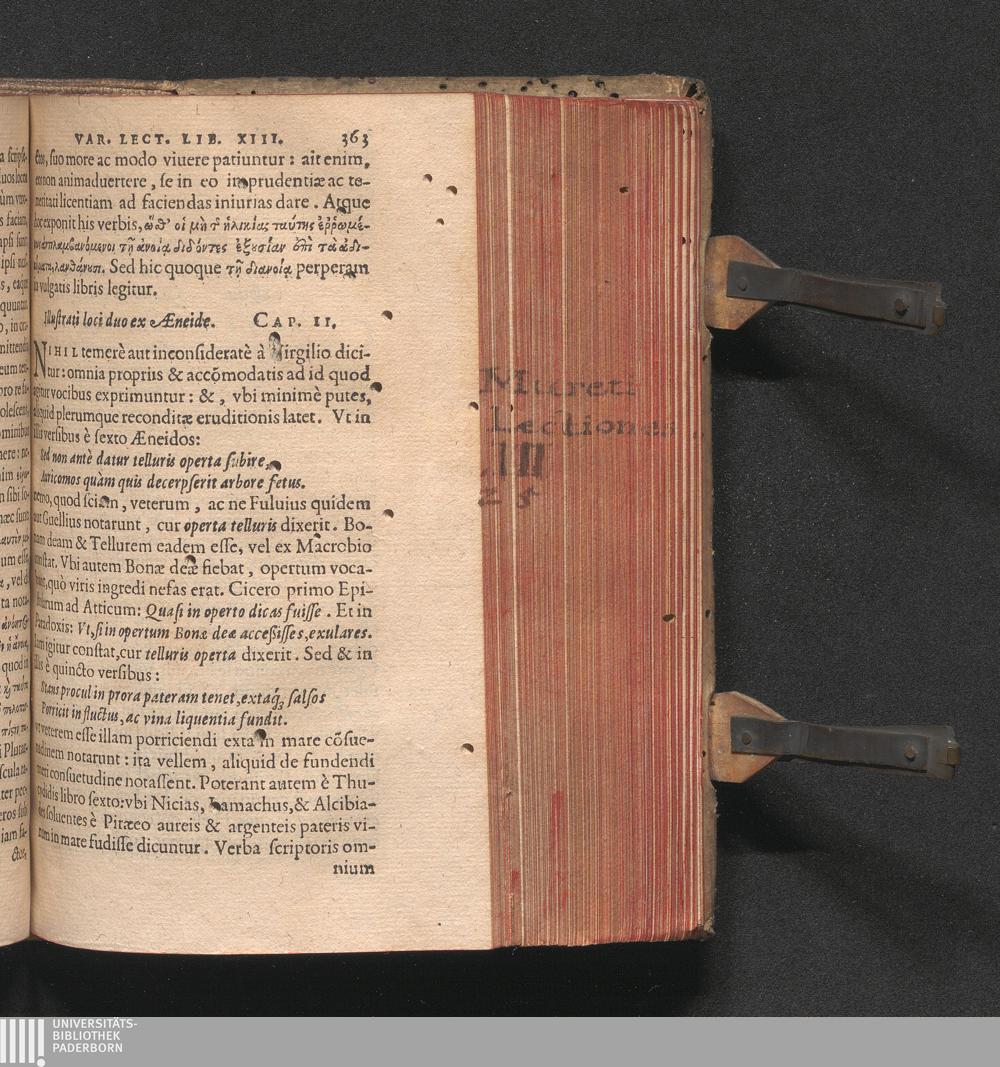 VAR. LECT. LIB. XIII. 363
ctos, suo more ac modo viuere patiuntur: ait enim,
eos non animaduertere, se in eo imprudentiæ ac te-
meritati licentiam ad faciendas iniurias dare. Atque
hoc exponit his verbis, ὥσθ' οἱ μὴ τ̃ ἡλικίας ταύτης ἐῤῥωμέ-
τῇ ἀνοίᾳ διδόντες ἐξουσίαν
λανθάνουσι. Sed hic quoque τῇ διανοίᾳ perperam
in vulgatis libris legitur.
Illustrati loci duo ex Æneide. CAP. II.
NIHIL temerè aut inconsideratè à Virgilio dici-
tur: omnia propriis & accõmodatis ad id quod
agitur vocibus exprimuntur: &, vbi minimè putes,
aliquid plerumque reconditæ eruditionis latet. Vt in
illis versibus è sexto Æneidos:
Sed non antè datur telluris operta subire,
Auricomos quàm quis decerpserit arbore fetus.
nemo, quod sciam, veterum, ac ne Fuluius quidem
aut Guellius notarunt, cur operta telluris dixerit. Bo-
nam deam & Tellurem eadem esse, vel ex Macrobio
constat. Vbi autem Bonæ deæ fiebat, opertum voca-
batur, quò viris ingredi nefas erat. Cicero primo Epi-
stolarum ad Atticum: Quasi in operto dicas fuisse. Et in
Paradoxis: Vt, si in opertum Bonæ deæ accessisses, exulares.
Iam igitur constat, cur telluris operta dixerit. Sed & in
illis è quincto versibus:
Stans procul in prora pateram tenet, extaq́; salsos
Porricit in fluctus, ac vina liquentia fundit.
vt veterem esse illam porriciendi exta in mare cõsue-
tudinem notarunt: ita vellem, aliquid de fundendi
meri consuetudine notassent. Poterant autem è Thu-
cydidis libro sexto: vbi Nicias, Lamachus, & Alcibia-
des soluentes è Piræeo aureis & argenteis pateris vi-
num in mare fudisse dicuntur. Verba scriptoris om-
nium
Mureti
Lectiones
25
UNIVERSITÄTS-
BIBLIOTHEK
PADERBORN